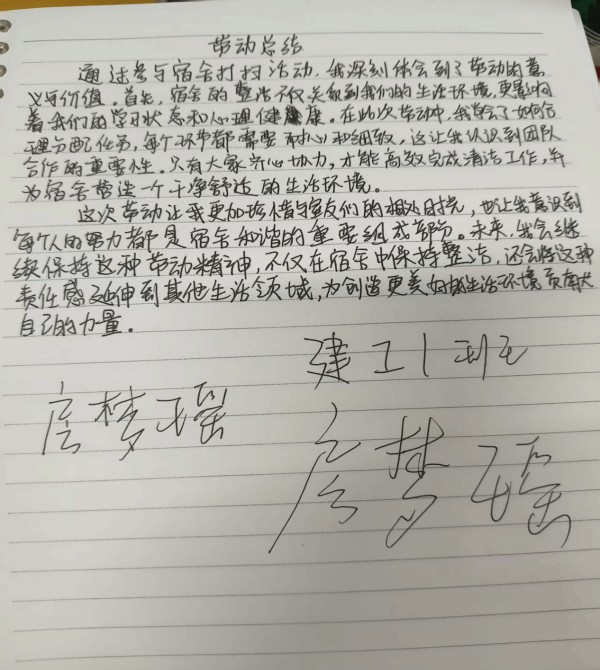 劳动总结
通过参与宿舍打扫活动,我深刻体会到了劳动的意
义与价值。首先,宿舍的整洁不仅关系到我们的生活环境,更影响
着我们的学习状态和心理健康。在此次劳动中,我学会了如何合
理分配任务,每个环节都需要耐心和细致,这让我认识到团队
合作的重要性。只有大家齐心协力,才能高效完成清洁工作,并
为宿舍营造一个干净舒适的生活环境。
这次劳动让我更加珍惜与室友们的相处时光,也让我意识到
每个人的努力都是宿舍和谐的重要组成部分。未来,我会继
续保持这种劳动精神,不仅在宿舍中保持整洁,还会将这种
责任感延伸到其他生活领域,为创造更美好的生活环境贡献
自己的力量。
建工1班
房梦瑶
房梦瑶